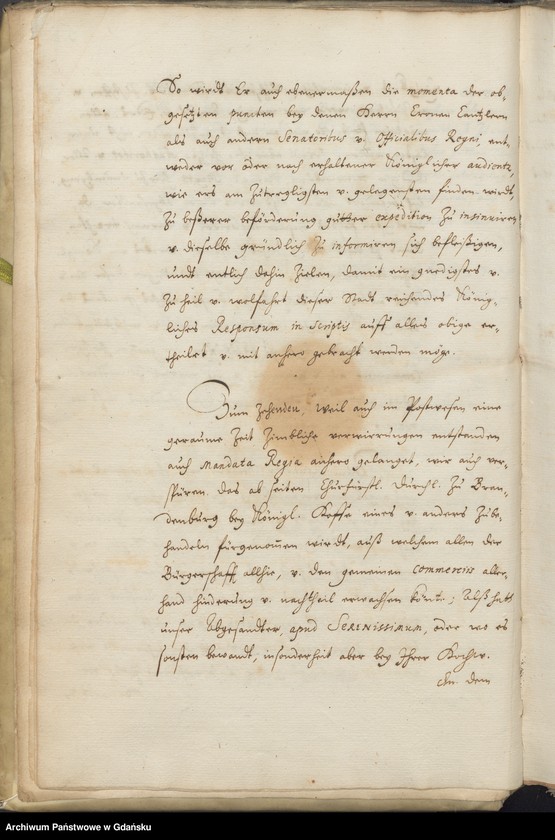 So wirdt Er auch ebenermaßen die momenta der ob-
gesetzten puncten bey denen Herrn Cronen Cantzlern
als auch andern Senatoribus v. Officialibus Regni, ent-
weder vor oder nach erhaltener Königlicher audientz,
wie ers am zutreglichsten v. gelegensten finden wirdt,
zu beßerer beförderung gutter expedition zu insinuiren
v. dieselbe gründlich zu informiren sich befleißigen,
undt entlich dahin zielen, damit ein gnedigstes v.
zu heil v. wolfahrt dieser Stadt reichendes König-
liches Responsum in Scriptis auff alles obige er-
theilet v. mit anhero gebracht werden möge.
Zum Zehenden, weil auch im Postwesen eine
geraume Zeit zimbliche verwirrungen entstanden
auch Mandata Regia anhero gelanget, wir auch ver-
spüren das ab seiten Churfürstl. Durchl. zu Bran-
denburg bey Königl. Hoffe eines v. anders zube-
handeln fürgenommen wirdt, auß welchem allen der
Bürgerschafft allhie, v. den gemeinen commerciis aller-
hand hinderung v. nachtheil erwachsen könte; Alß hatt
unser Abgesandter, apud SERENISSIMUM, oder wo es
sonsten bewandt, insonderheit aber bey Ihrer
dem
Archiwum Państwowe w Gdańsku